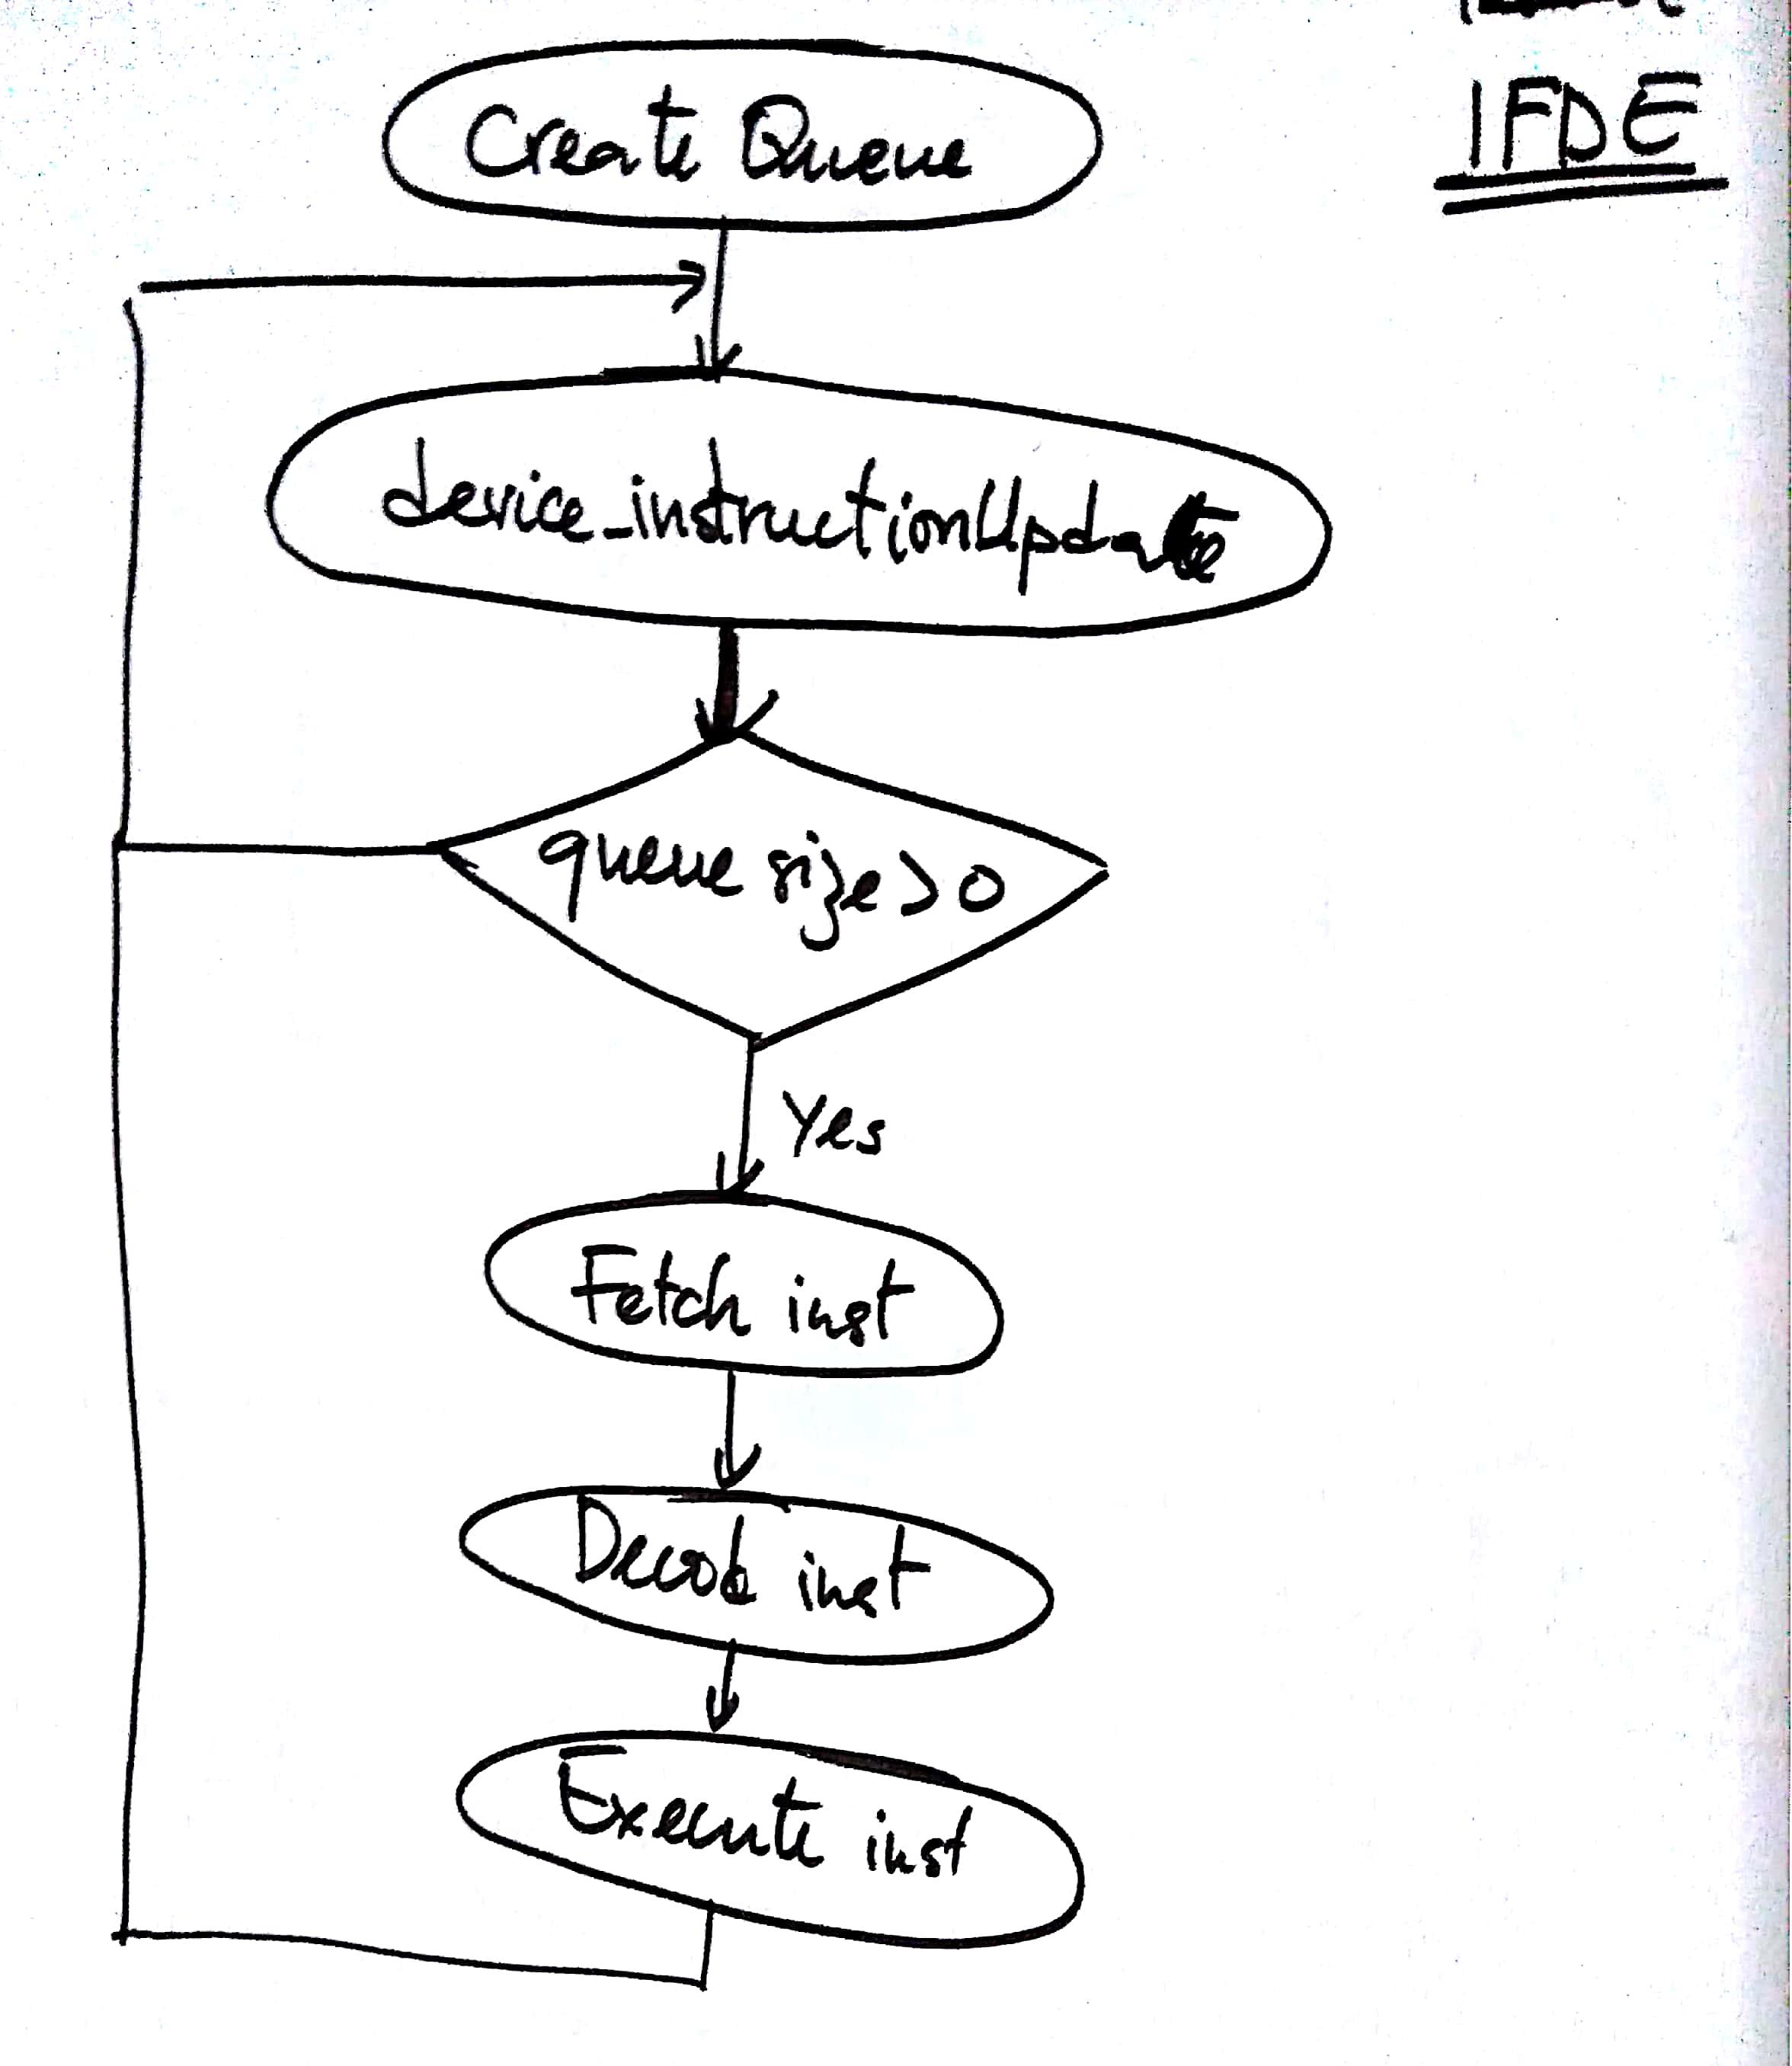 IFDE
Create Queue
device_instructionUpdate
queue size > 0
Yes
Fetch inst
Decode inst
Execute inst